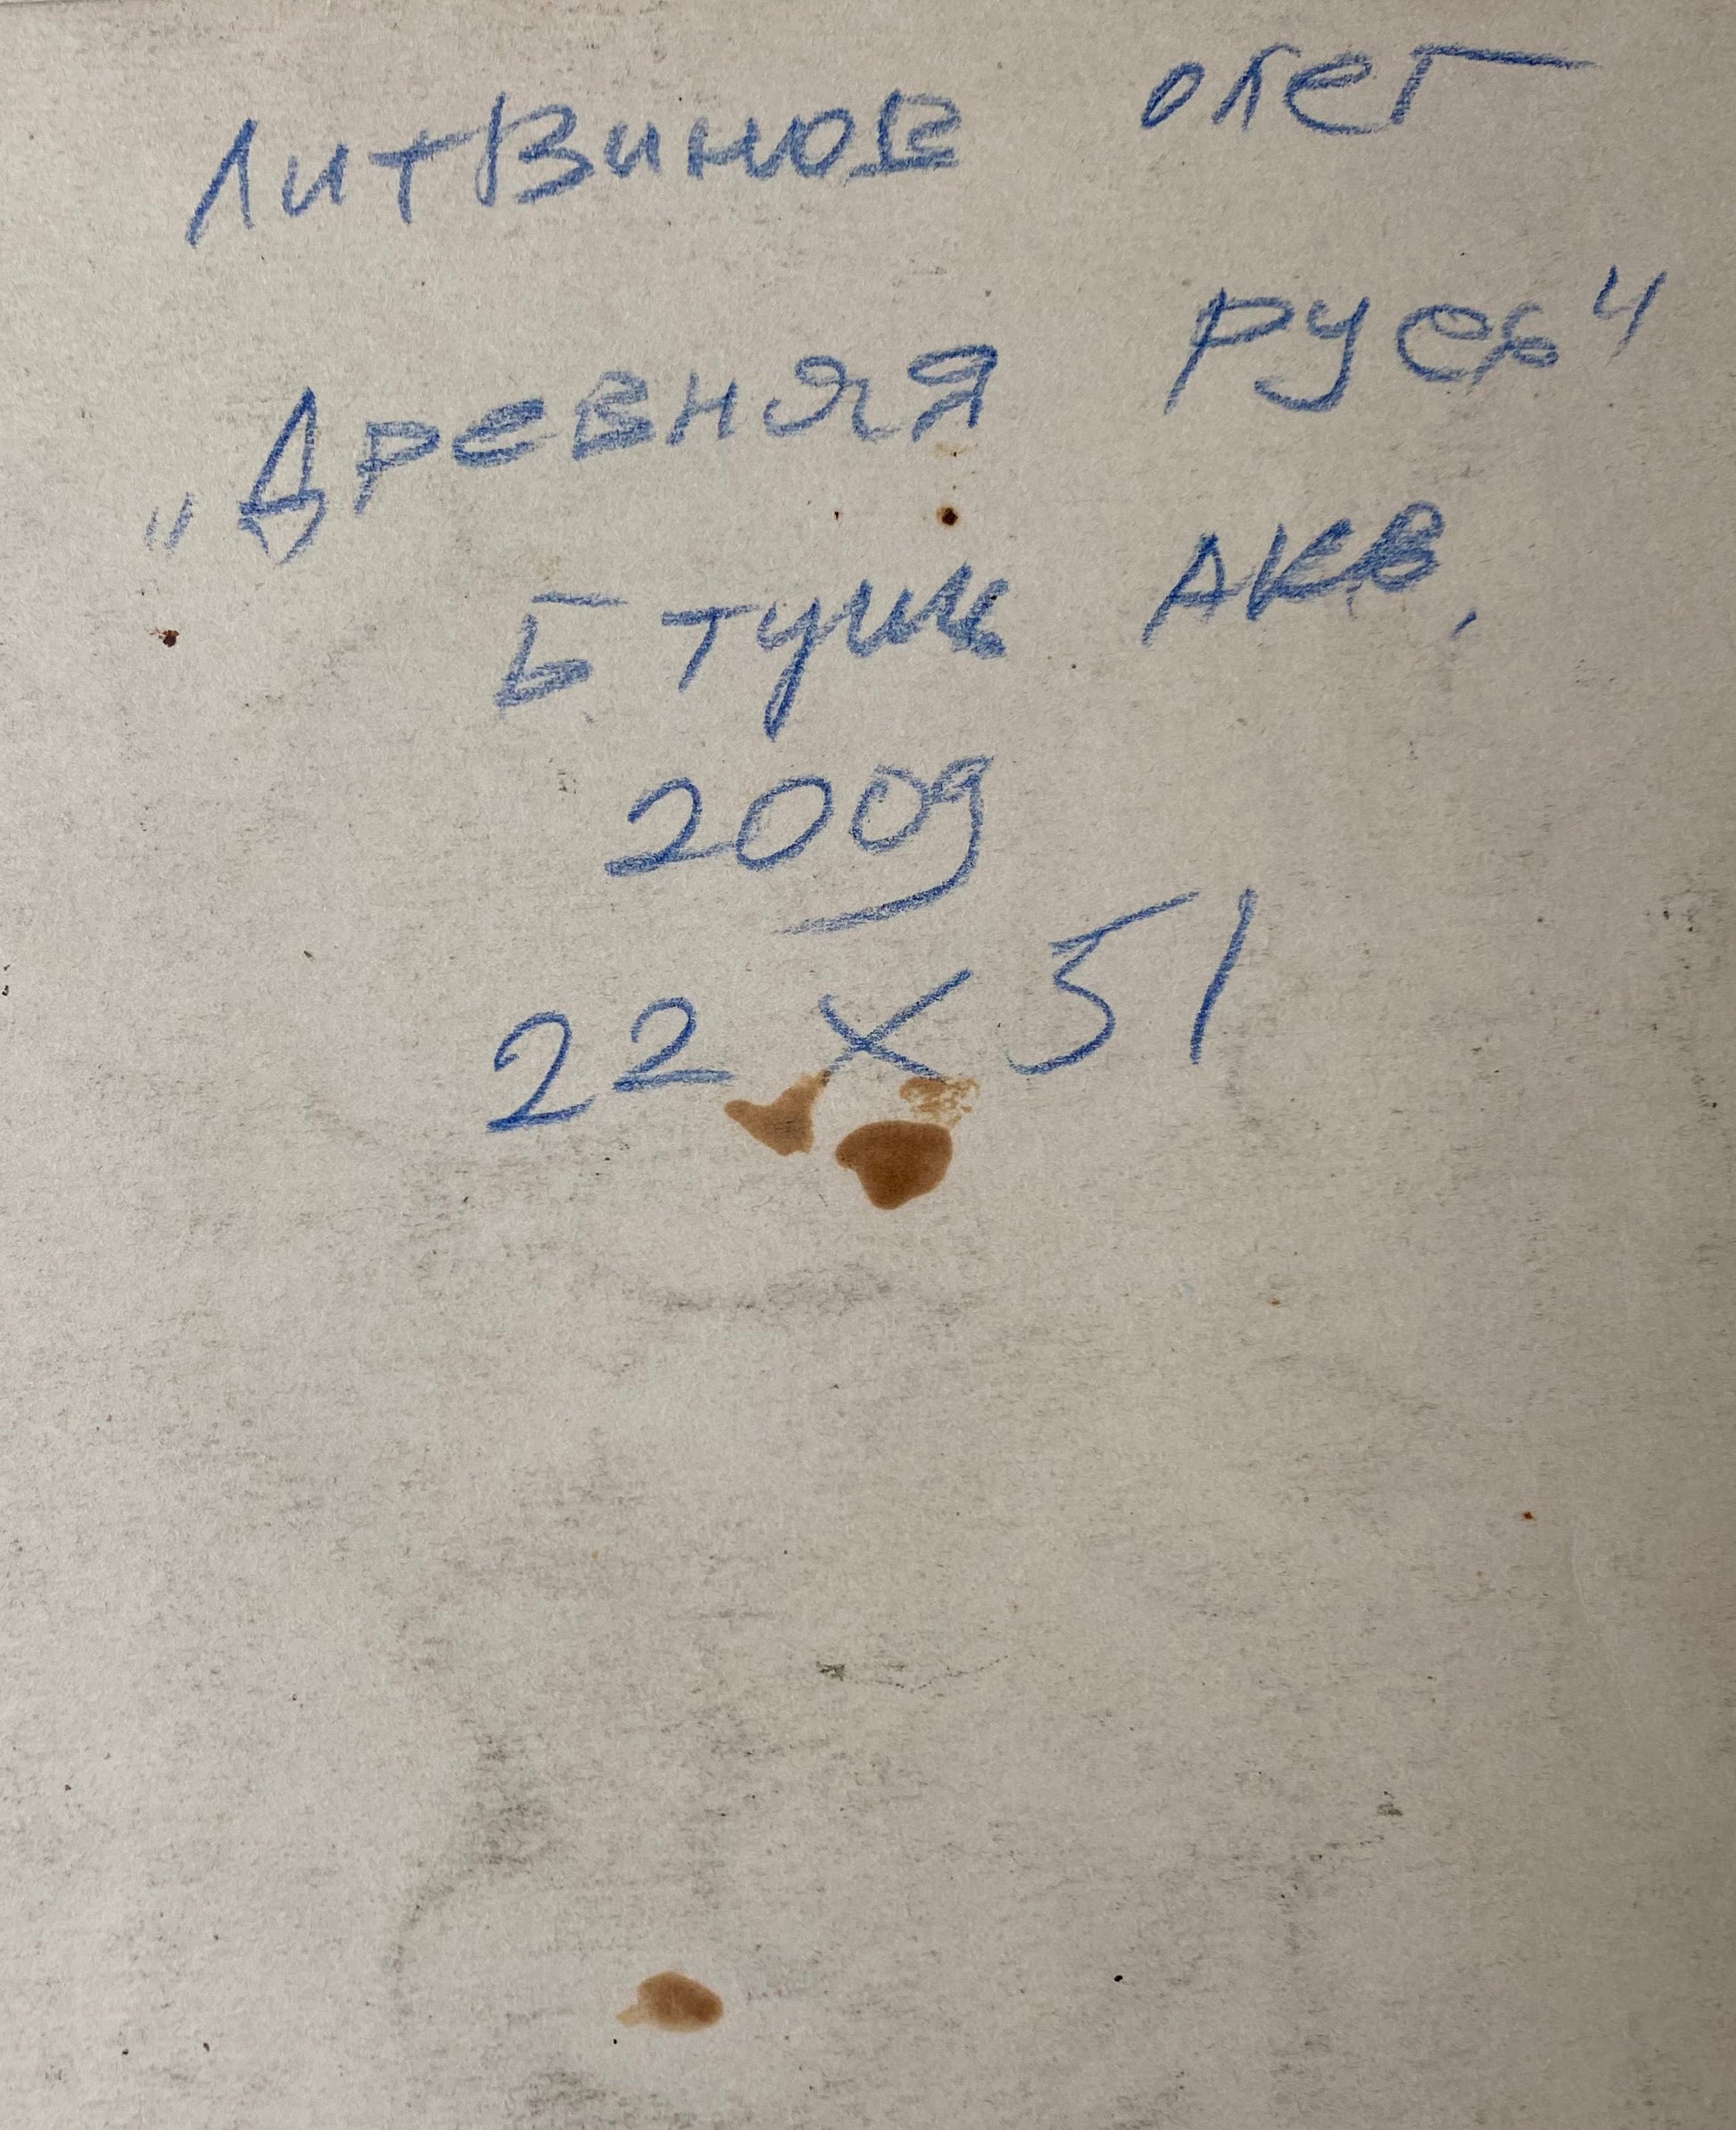 Литвинов Олег
„Древняя Русь"
Б тушь акв.
2009
22 х 51